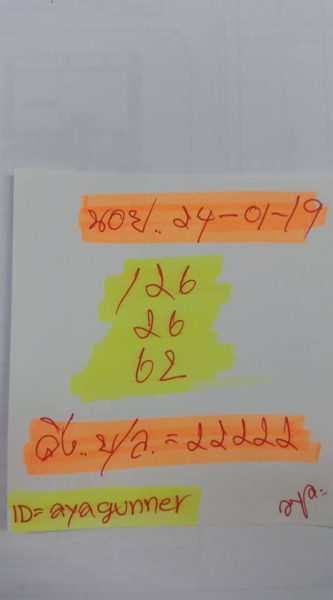 นอย.. 24-01-19
126
26
62
ดึง.. บ/ล. = 22222
ID= ayagunner